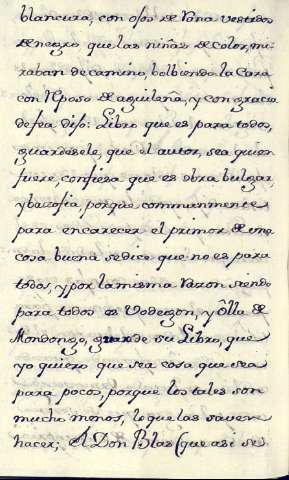 blancura, con ojos de Vona vestidos
de negro, que las niñas de color, mi
raban de camino, bolbiendo la Cara
con Reposo de aguileña, y con gracia
de fea dijo: Libro que es para todos,
guardesele, que el autor, sea quien
fuere, confiesa que es obra bulgar
y bazofia, porque communmente
para encarecer el primor de una
cosa buena se dice que no es para
todos, y por la misma razon siendo
para todos es Vodegon, y olla de
Mondongo, guarde su Libro, que
yo quiero que sea cosa que sea
para pocos, porque los tales son
mucho menos, lo que las saven
hacer; A Don Blas (que asi se